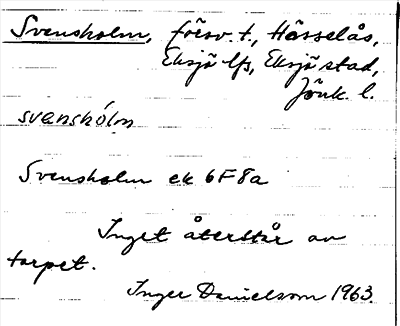 Svensholm, försv. t., Hässelås,
Eksjö lfs, Eksjö stad,
Jönk. l.
svanshólm
Svensholm ek 6F8a
Inget återstår av
torpet.
Inger Danielsson 1963.